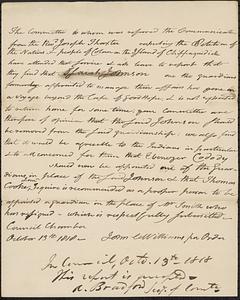 The Committee to whom was referred the Communication
from the Revd Joseph Thaxter respecting the Petition of
the Natives & people of Colour on the Island of Chappaquiddick
have attended that service & ask leave to report that
they find that Johnson one the guardians
formerly appointed to manage their affairs has gone on
a voyage beyond the Cape of Good Hope, & is not expected
to return home for some time your Committee are
therefore of opinion that the said Johnson should
be removed from the said guardianship. we also find
that it would be agreeable to the Indians in particular
& to recommend for them that Ebenezer
should now be appointed one of the Guardians
in place of the said Johnson & that Thomas
Cooke, Esquire is recommended as a proper person to be
appointed a guardian in the place of Mr Smith who
has resigned - which is respectfully submitted
Council Chamber
October 13th 1818 - John Williams pr Order
In Council Octo. 13th 1818
This report is accepted
A. Bradford Secy. of Comth